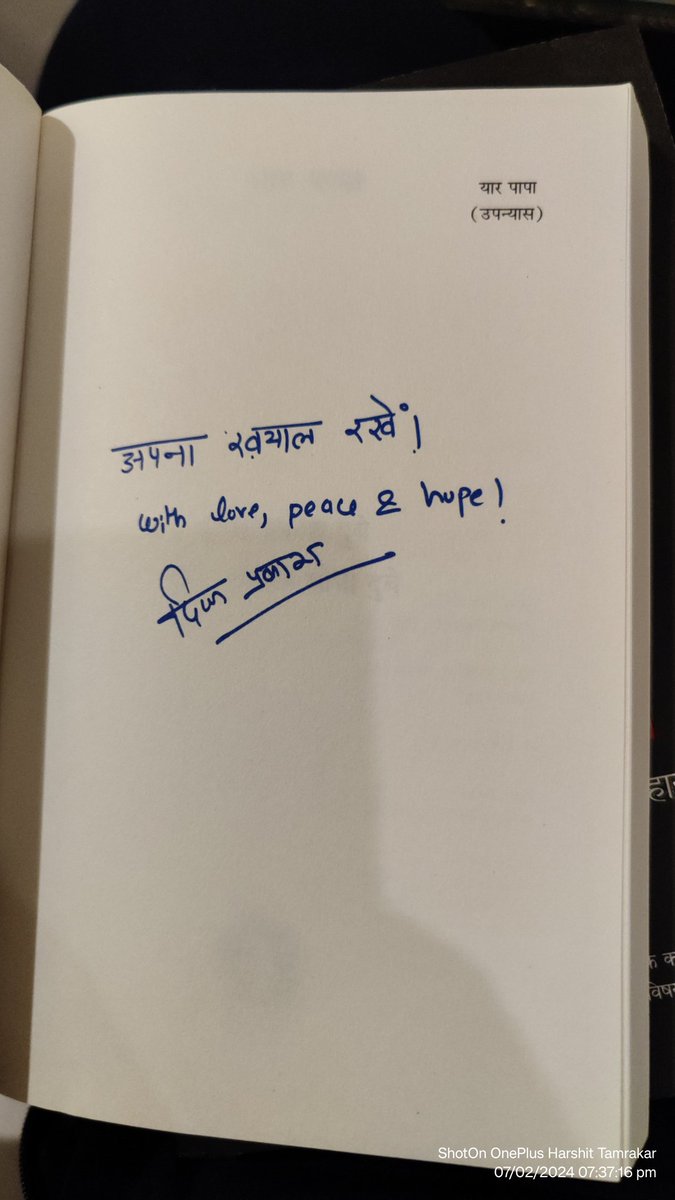 यार पापा
(उपन्यास)
अपना ख़याल रखें!
with love, peace & hope!
दिव्य प्रकाश
ShotOn OnePlus Harshit Tamrakar
07/02/2024 07:37:16 pm